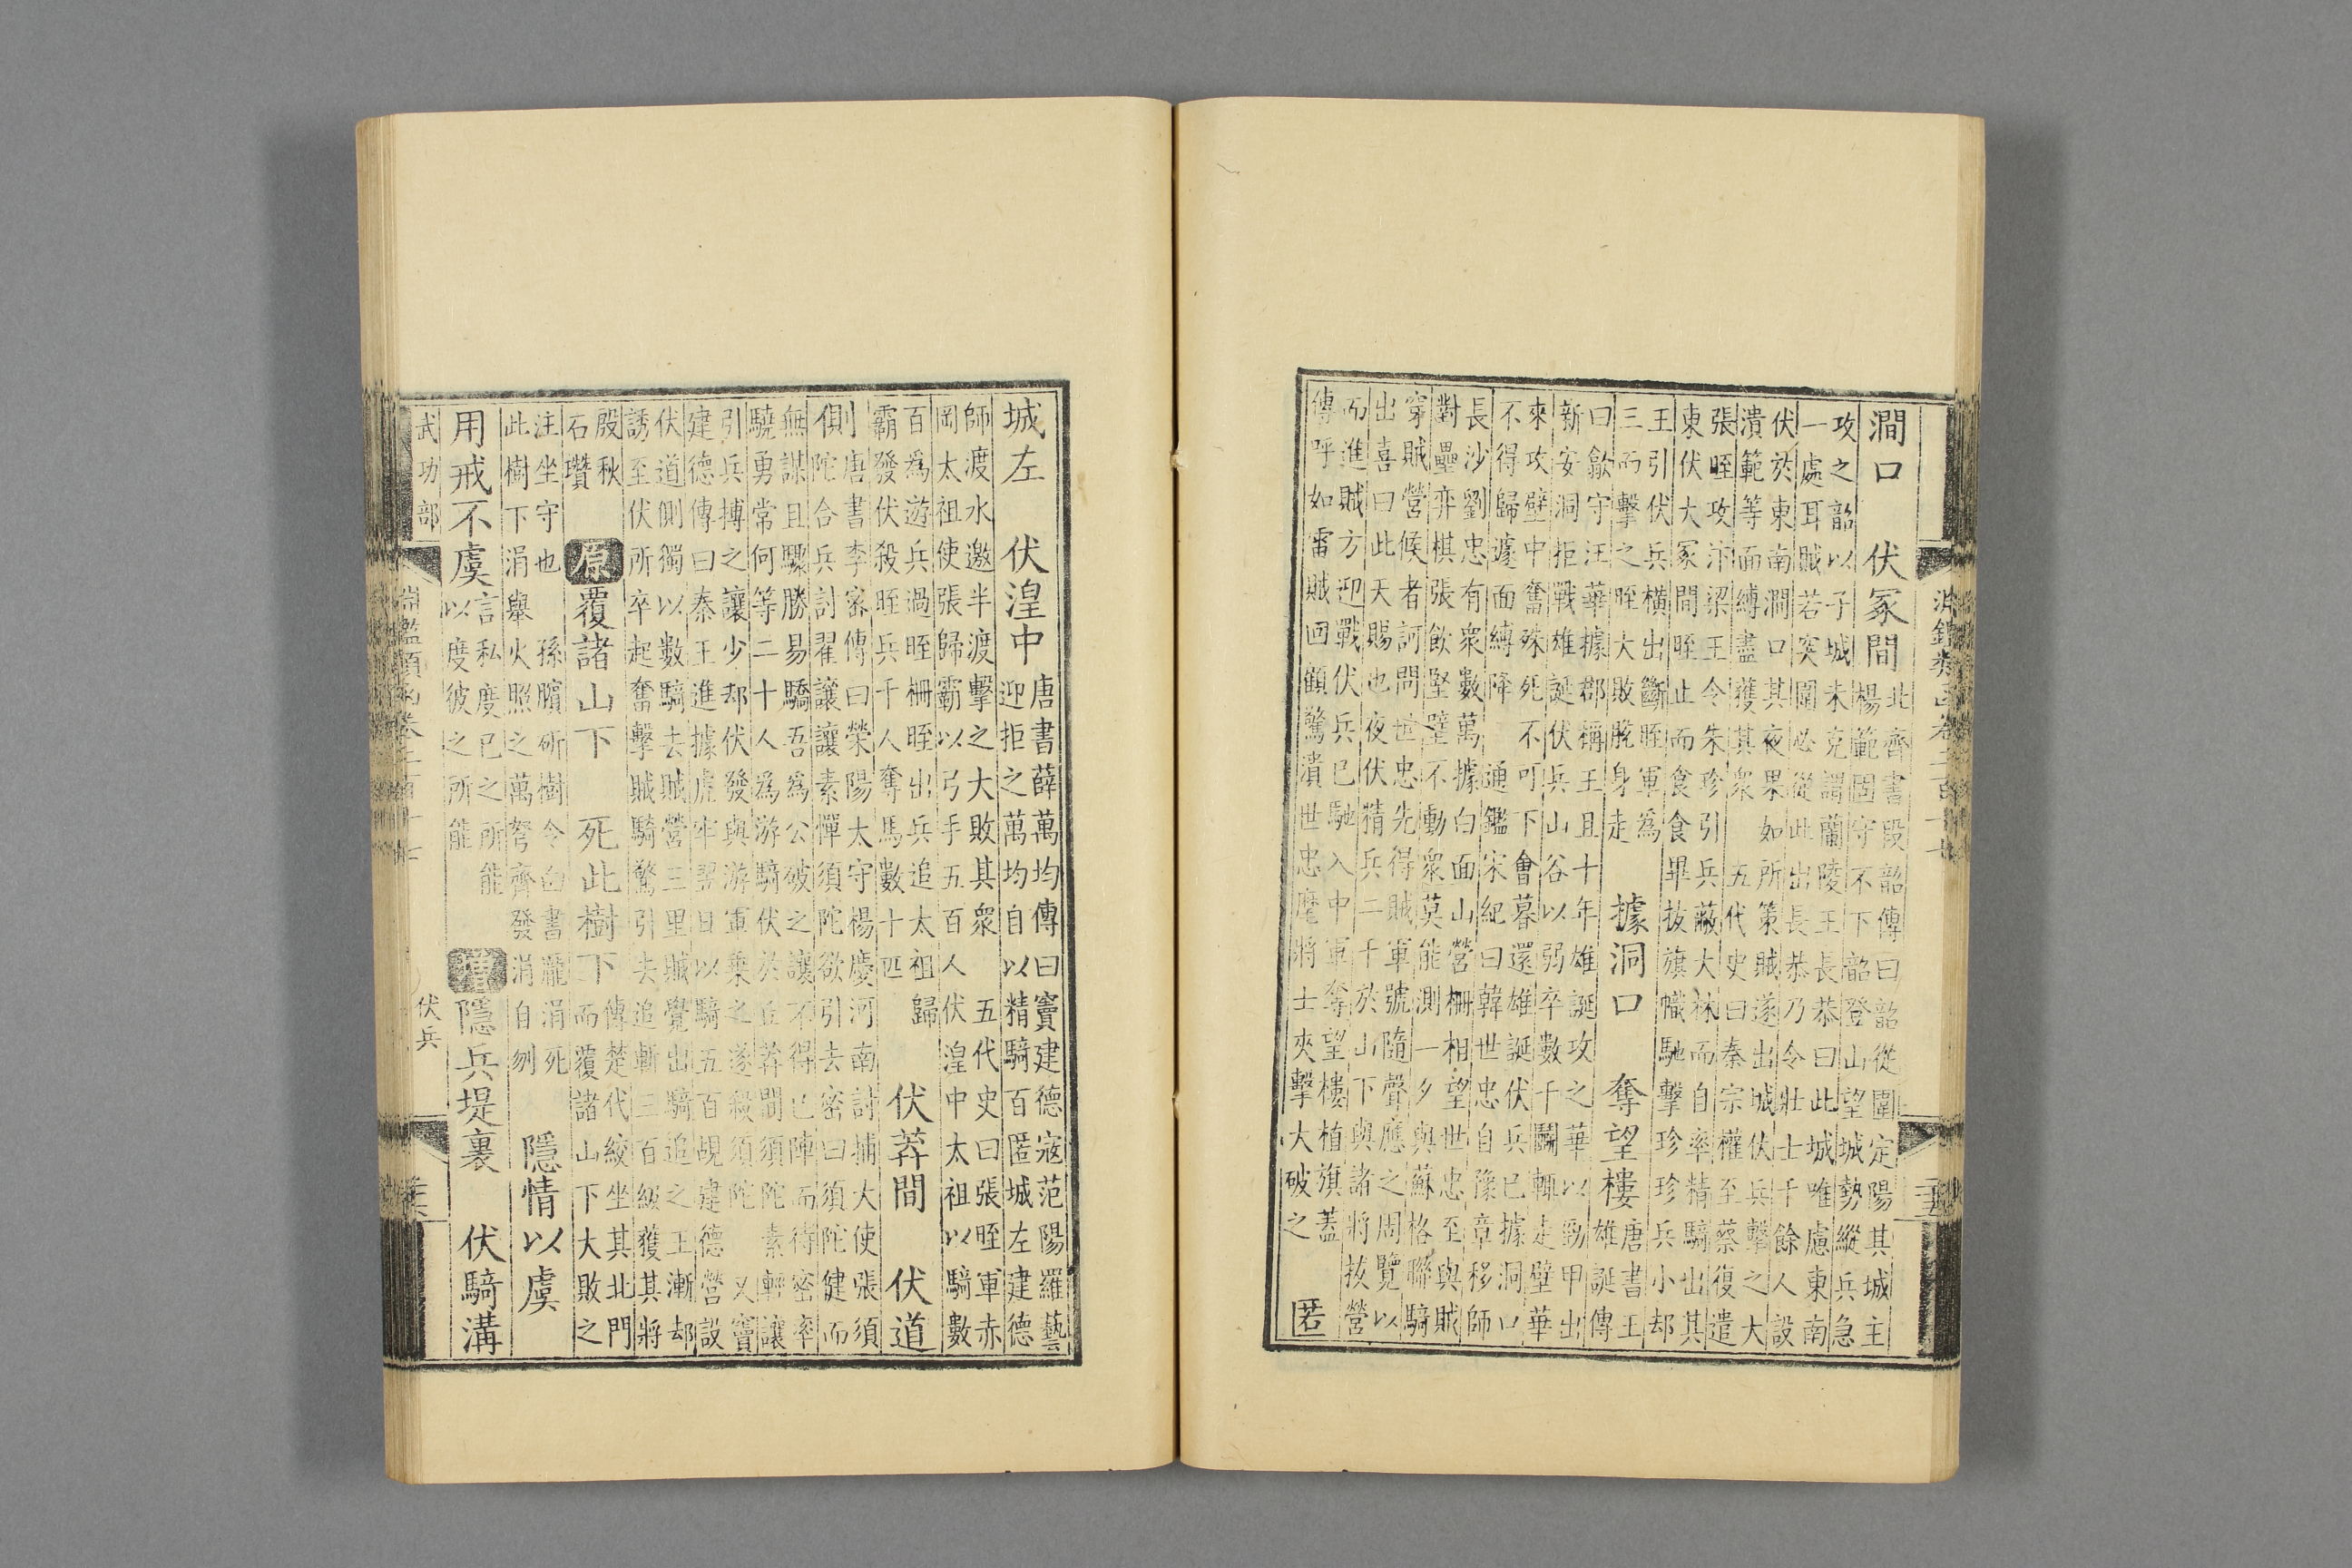 淵鑑類函卷二百十七
澗口 伏冢間 北齊書段韶傳曰韶從圍定陽其城主
楊範固守不下韶登山望城勢縱兵急
攻之韶以子城未克謂蘭陵王長恭曰此城唯慮東南
一處耳賊若突圍必從此出長恭乃令壯士千餘人設
伏於東南澗口其夜果如所策賊遂出城伏兵擊之大
潰範等面縛盡獲其衆 五代史曰秦宗權至蔡復遣
張晊攻汴梁王令朱珍引兵蔽大林而自率精騎出其
東伏大冢間晊止而食食畢拔旗幟馳擊珍珍兵小却
王引伏兵橫出斷晊軍為
三而擊之晊大敗脫身走 據洞口 奪望樓 唐書王
雄誕傳
曰歙守汪華據郡稱王且十年雄誕攻之華以勁甲出
新安洞拒戰雄誕伏兵山谷以弱卒數千鬭輒走壁華
來攻壁中奮殊死不可下會暮還雄誕伏兵已據洞口
不得歸遽面縛降 通鑑宋紀曰韓世忠自豫章移師
長沙劉忠有衆數萬據白面山營柵相望世忠至與賊
對壘弈棋張飲堅壁不動衆莫能測一夕與蘇格聯騎
穿賊營候者訶問世忠先得賊軍號隨聲應之周覽以
出喜曰此天賜也夜伏精兵二千於山下與諸將拔營
而進賊方迎戰伏兵已馳入中軍奪望樓植旗蓋
傳呼如雷賊回顧驚潰世忠麾將士夾擊大破之 匿
城左 伏湟中 唐書薛萬均傳曰竇建德寇范陽羅藝
迎拒之萬均自以精騎百匿城左建德
師渡水邀半渡擊之大敗其衆 五代史曰張晊軍赤
岡太祖使張歸霸以弓手五百人伏湟中太祖以騎數
百為遊兵過晊柵晊出兵追太祖歸
霸發伏殺晊兵千人奪馬數十匹 伏莽間 伏道
側 唐書李密傳曰滎陽太守楊慶河南討捕大使張須
陀合兵討翟讓讓素憚須陀欲引去密曰須陀健而
無謀且驟勝易驕吾為公破之讓不得已陣而待密率
驍勇常何等二十人為游騎伏於丘莽間須陀素輕讓
引兵搏之讓少却伏發與游軍乘之遂殺須陀 又竇
建德傳曰秦王進據虎牢翌日以騎五百覘建德營設
伏道側獨以數騎去賊營三里賊覺出騎追之王漸却
誘至伏所卒起奮擊賊騎驚引去追斬三百級獲其將
殷秋
石瓚 原 覆諸山下 死此樹下 傳楚伐絞坐其北門
而覆諸山下大敗之
注坐守也 孫臏斫樹令白書龐涓死
此樹下涓舉火照之萬弩齊發涓自刎 隱情以虞
用戒不虞 言私度已之所能
以度彼之所能 增 隱兵堤裏 伏騎溝
武功部 淵鑑類函卷二百十七 伏兵